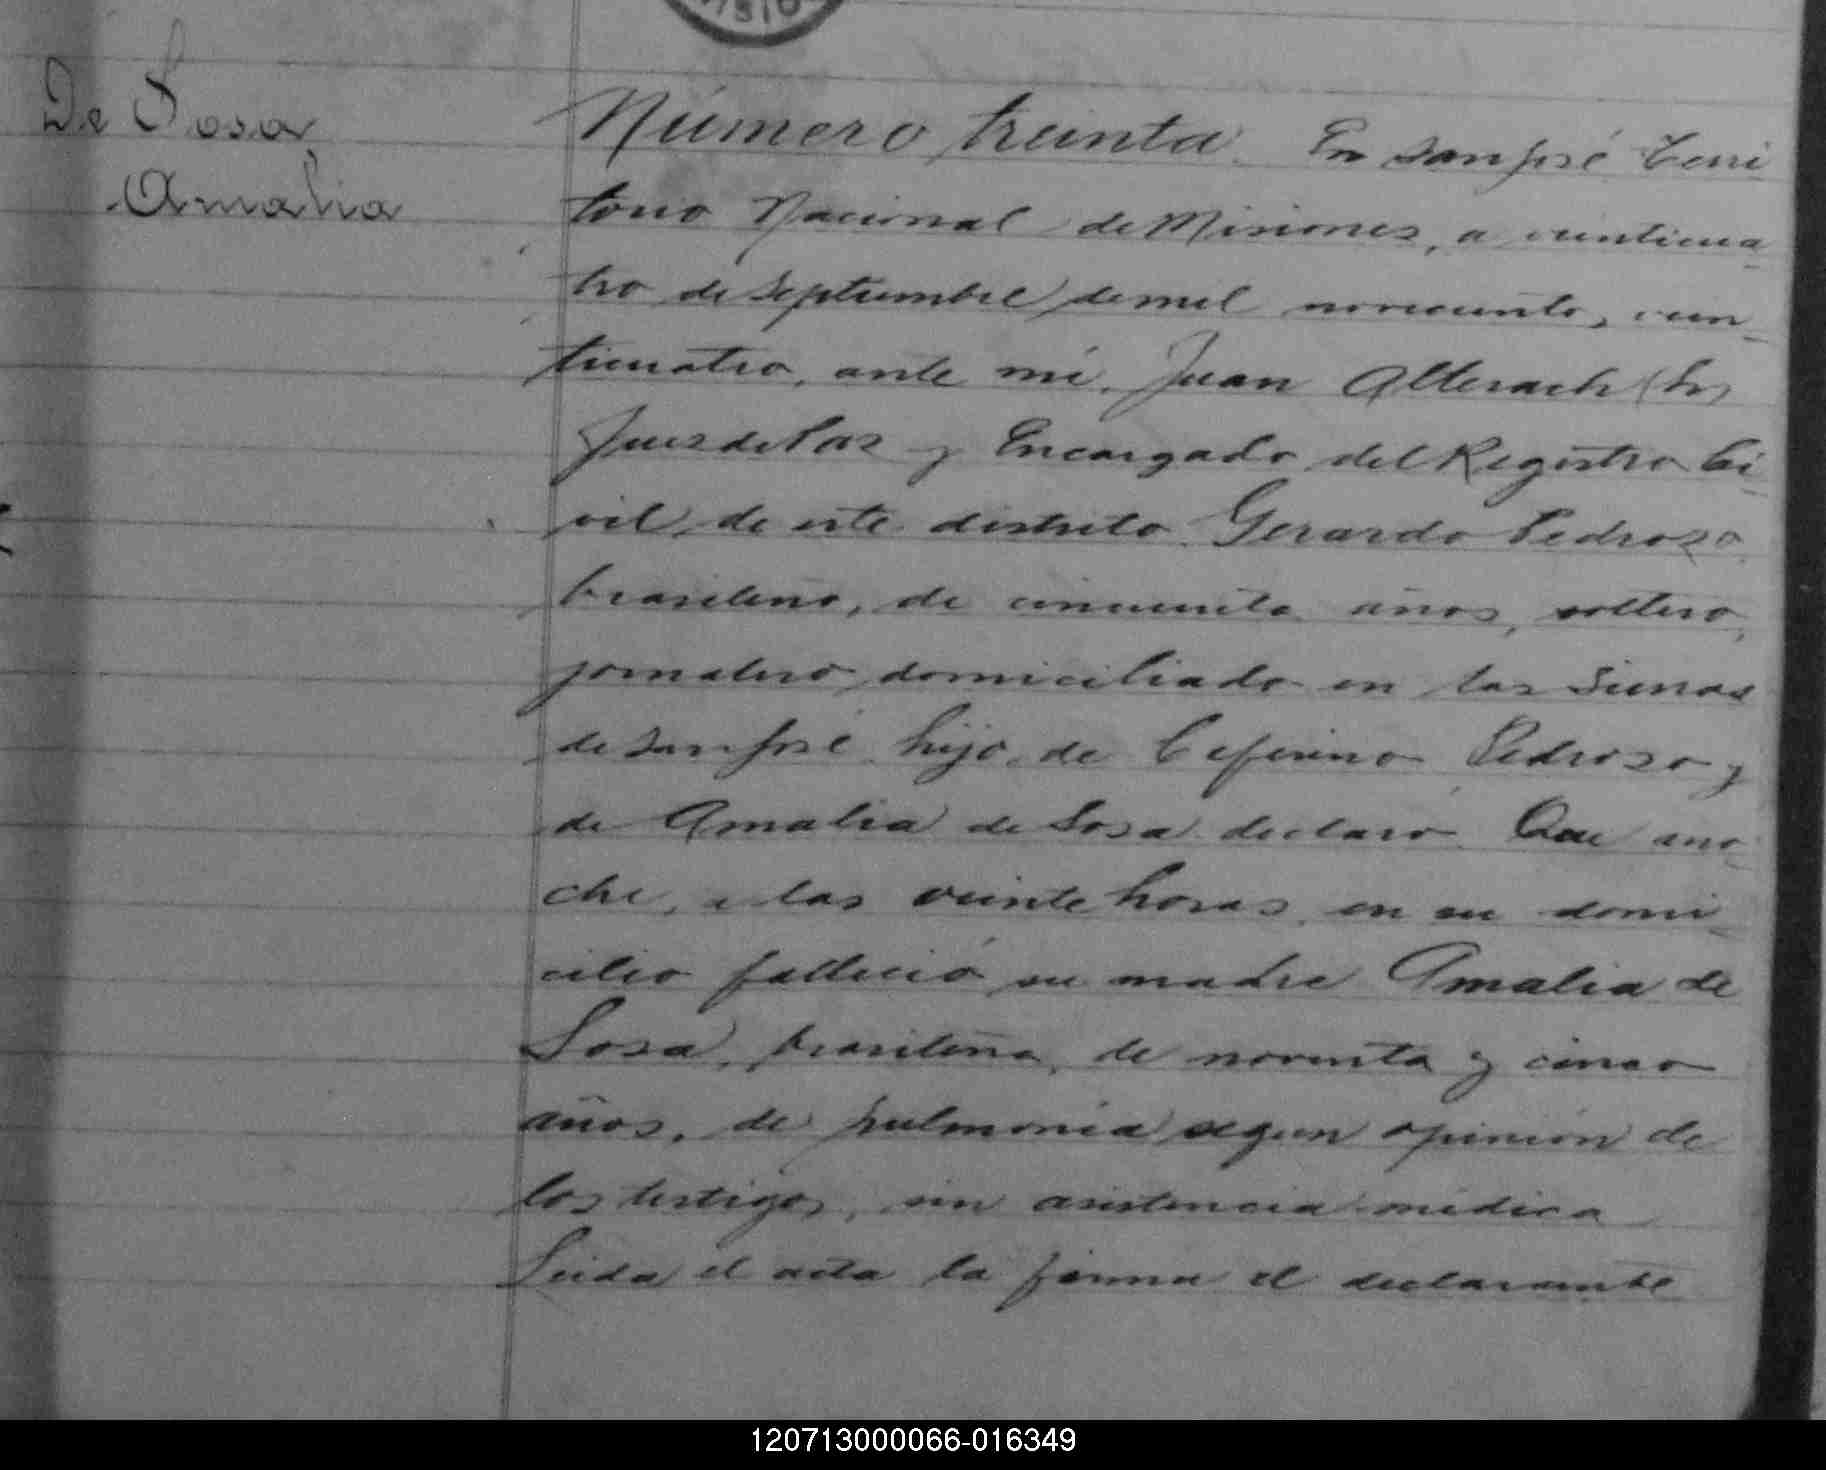 De Sosa,
Amalia
Número treinta. En San José Terri
torio Nacional de Misiones, a veinticua-
tro de septiembre de mil novecientos vein-
ticuatro, ante mí, Juan Alterach (h)
Juez de Paz y Encargado del Registro Ci-
vil de este distrito. Gerardo Pedrozo,
brasileño, de cincuenta años, soltero,
jornalero domiciliado en las Sierras
de San José hijo de Ceferino Pedrozo y
de Amalia de Sosa declaró Que ano-
che, a las veinte horas, en su domi-
cilio falleció su madre Amalia de
Sosa, brasileña, de noventa y cinco
años, de pulmonía segun opinión de
los testigos, sin asistencia médica
Leida el acta la firma el declarante
120713000066-016349